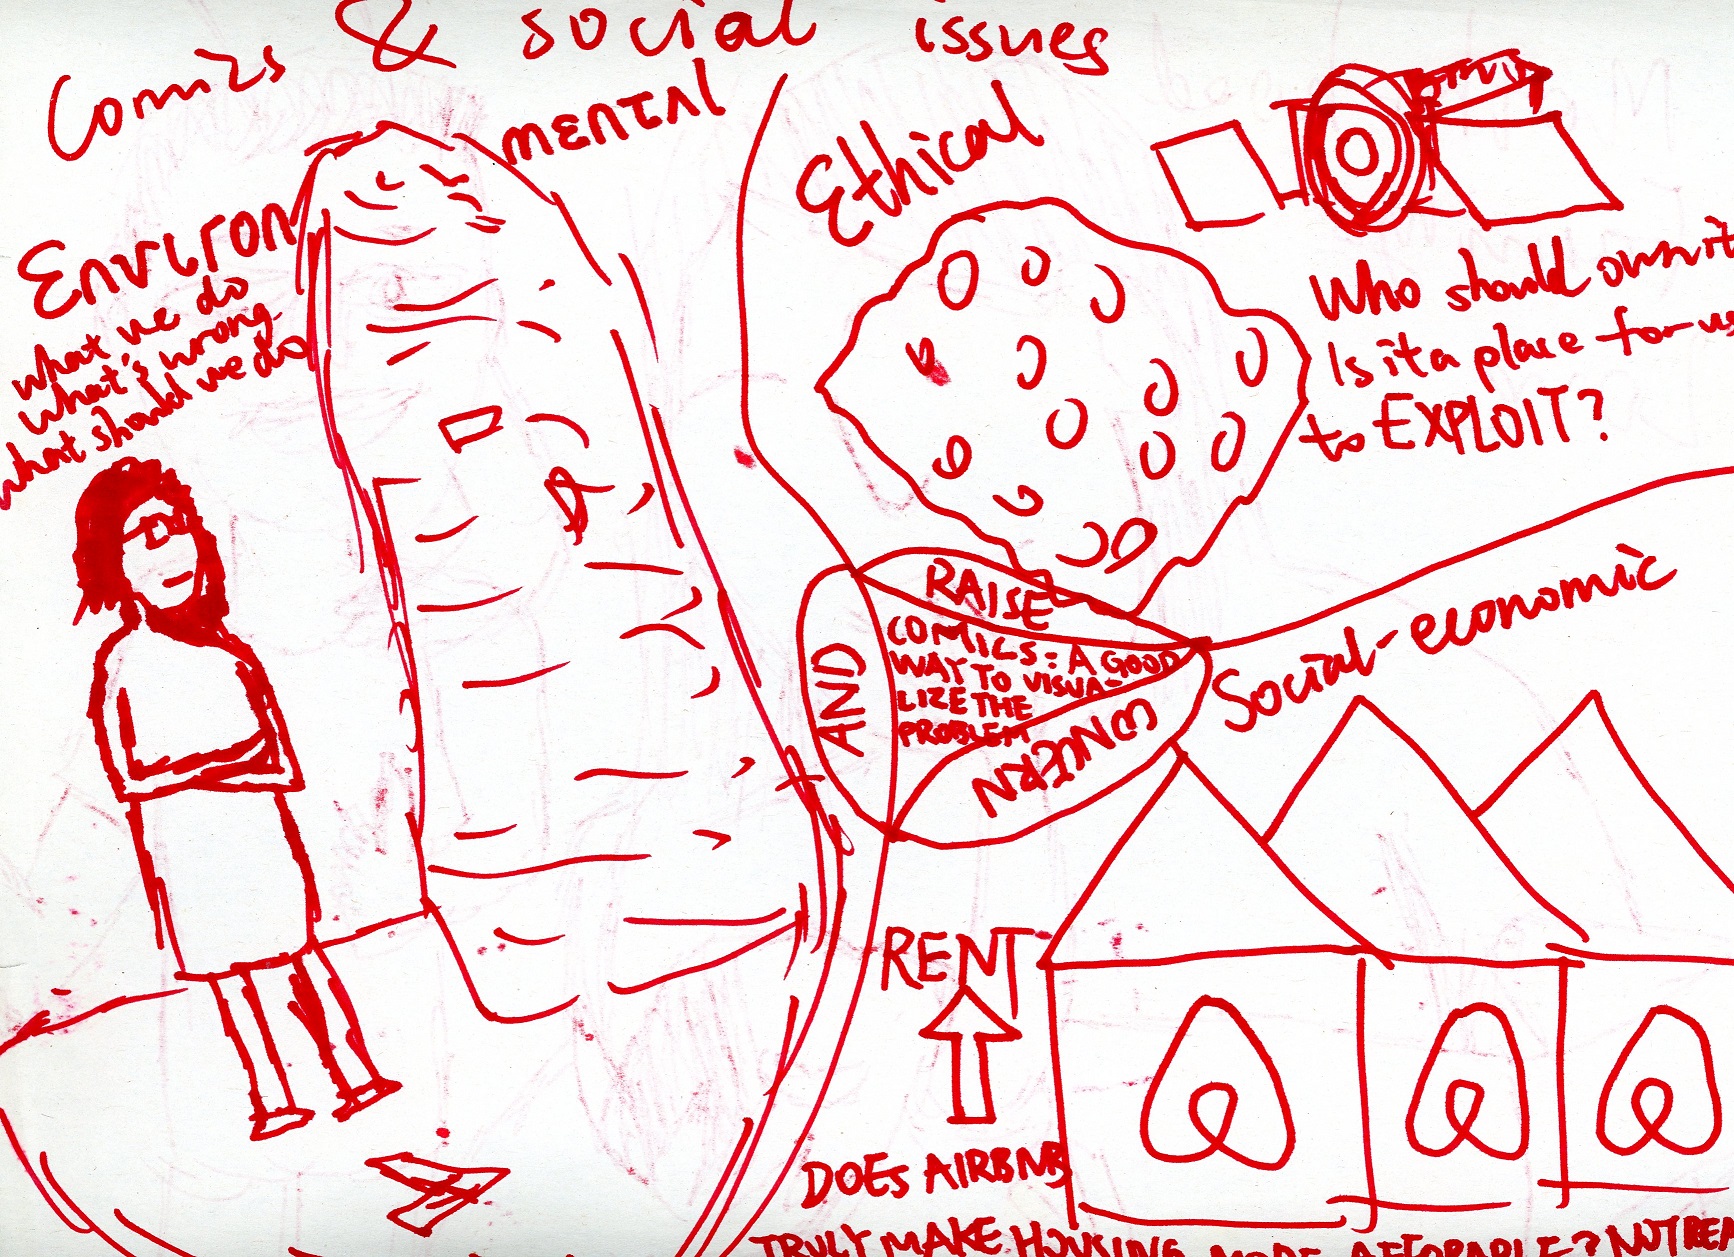 Comics & social issues
ENVIRON
MENTAL
what we do
what's wrong
what should we do
Ethical
Who should own it
Is it a place for us
to EXPLOIT?
RAISE
AND
COMICS: A GOOD
WAY TO VISUA-
LIZE THE
PROBLEM
Social-economic
RENT
DOES AIRBNB
TRULY MAKE HOUSING MORE AFFORDABLE? NOT REA